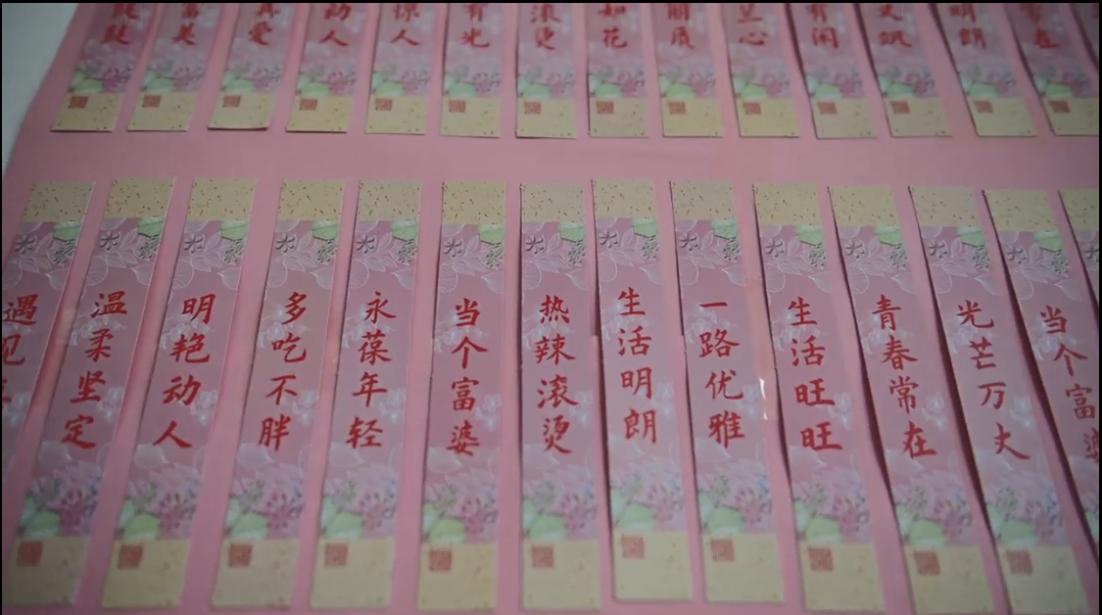 真爱
动人
有光
滚烫
如花
丽质
心
有闲
明朗
常在
遇见
温柔坚定
明艳动人
多吃不胖
永葆年轻
当个富婆
热辣滚烫
生活明朗
一路优雅
生活旺旺
青春常在
光芒万丈
当个富婆